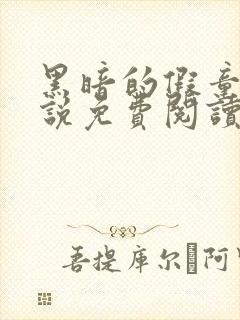 黑暗的假童
說免費閱讀
菩提庫尔�阿